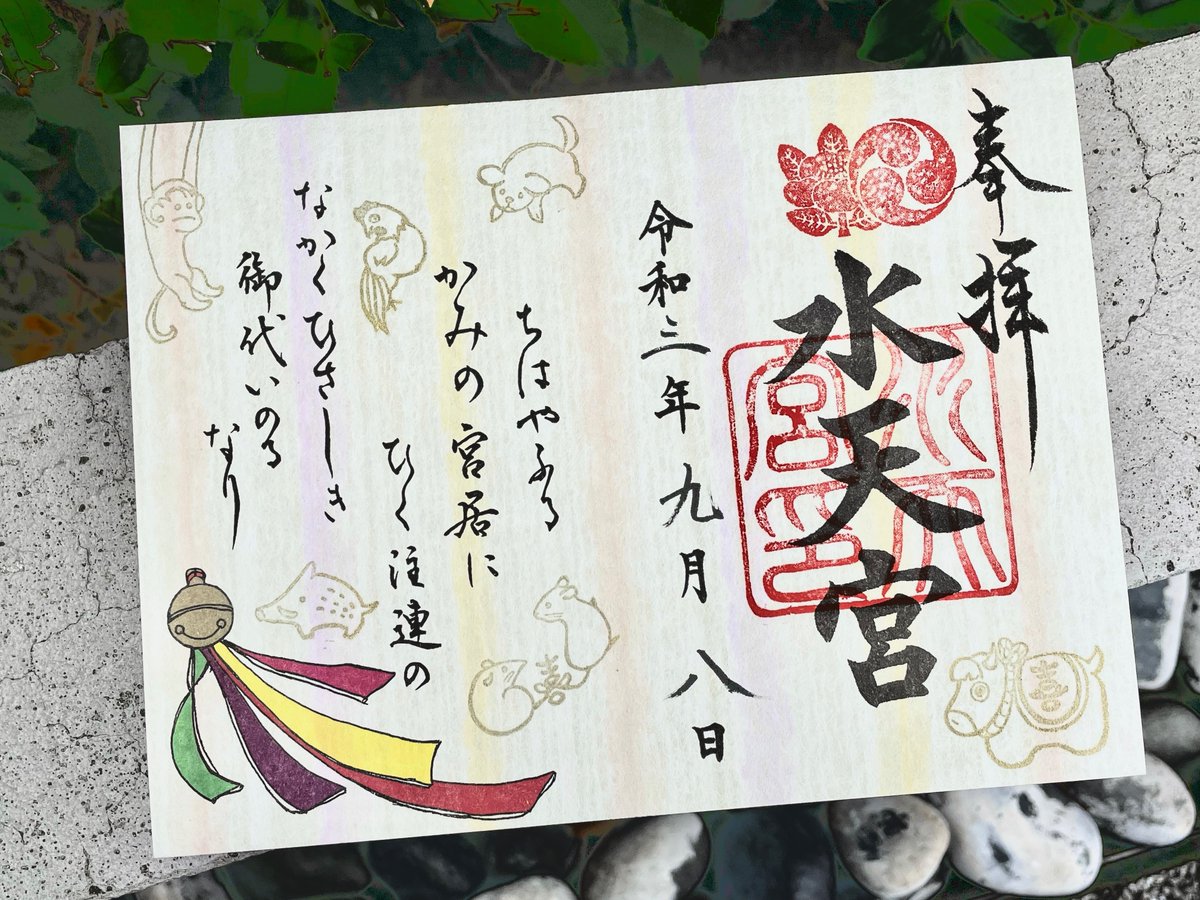 奉拝
水天宮
令和三年九月八日
ちはやふる
かみの宮居に
ひく注連の
なかくひさしき
御代いのる
なり
喜
喜